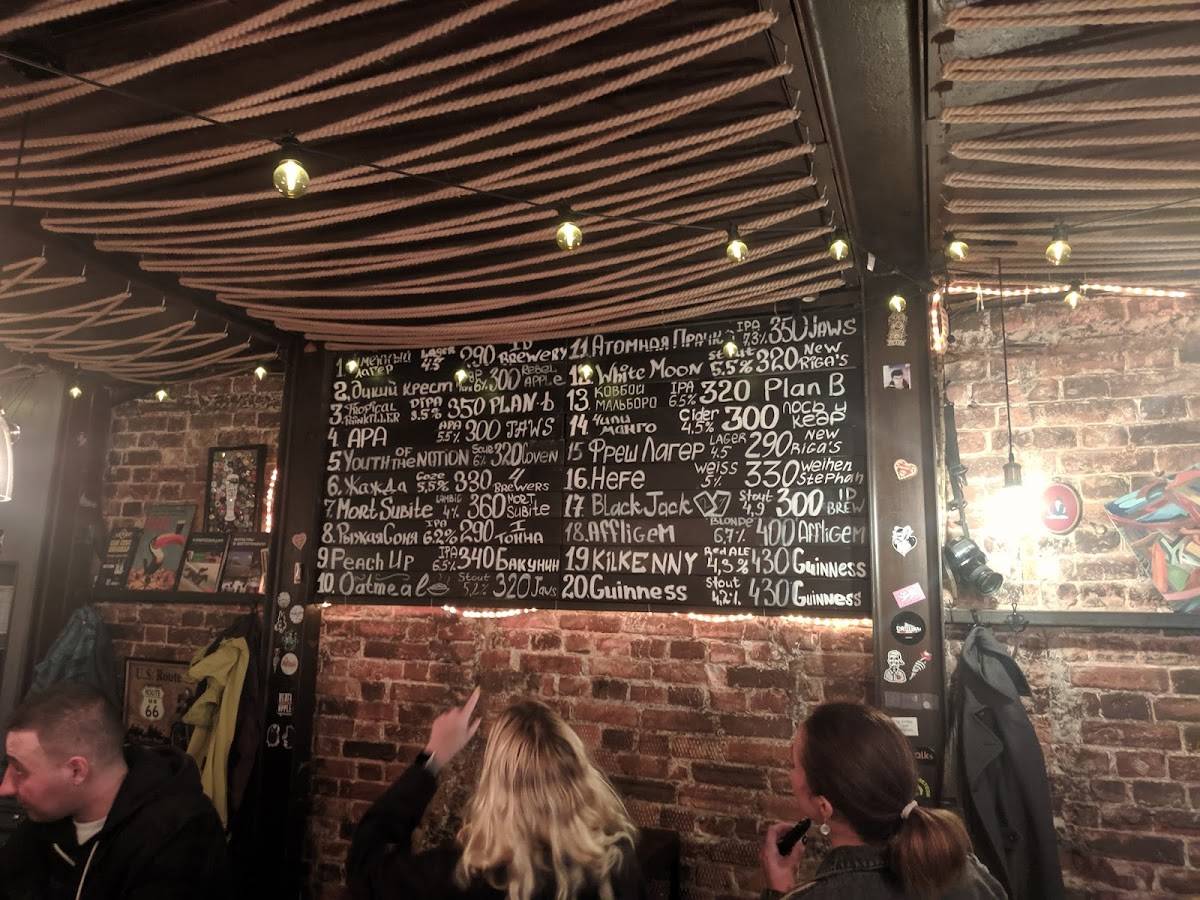 1. Лагер Lager 4.5 290 ID BREWERY
2. Дикий Крест 6% 300 REBEL APPLE
3. Tropical Painkiller DIPA 8.5% 350 PLAN-b
4. APA APA 5.5% 300 JAWS
5. YOUTH OF THE NOTION Sour 6% 320 Coven
6. Жажда Goze 5,5% 330 4 BREWERS
7. Mort Subite LAMBIC 4% 360 MORT SUBITE
8. Рыжая Соня IPA 6.2% 290 1 Тонна
9 Peach Up IPA 6.5% 340 Бакунин
10. Oatmeal Stout 5,2% 320 Jaws
11. Атомная Прачк IPA 7.8% 350 JAWS
White Moon Stout 5.5% 320 New RIGA'S
13. КОВБОЙ МАЛЬБОРО IPA 6.5% 320 Plan B
14 Чили МАНГО Cider 4,5% 300 ЛОСЬ И КЕДР
15 Фреш Лагер LAGER 4.5 290 New RIGA'S
16. Hefe weiss 5% 330 Weihen Stephan
17 Black Jack Stout 4,9 300 ID BREW
18. Affligem BLONDE 6,7% 400 Affligem
19 KILKENNY Red ALE 4,3% 430 Guinness
20. Guinness Stout 4.2% 430 Guinness
U.S. Route
66